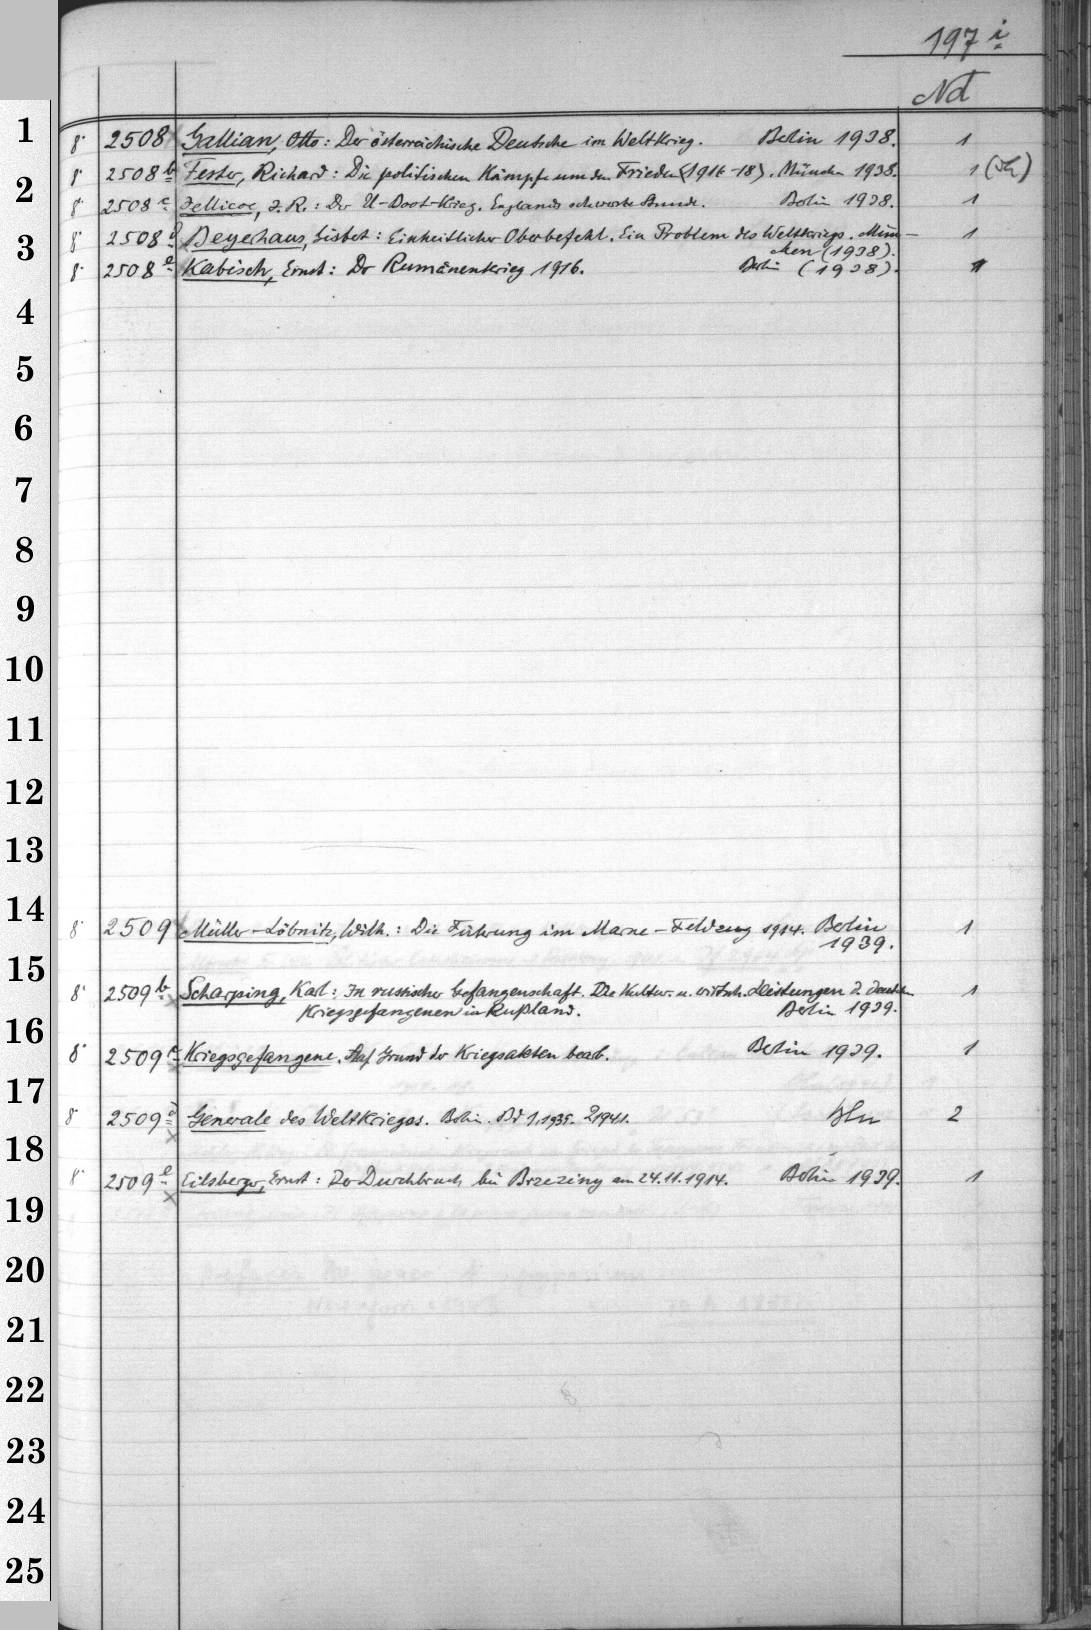 197 i
Nd
1
8° 2508 Gallian, Otto: Der österreichische Deutsche im Weltkrieg. Berlin 1938. 1
8° 2508 b Fester, Richard: Die politischen Kämpfe um den Frieden (1916-18). München 1938. 1
2
8° 2508 c Jellicoe, J. R.: Der U-Boot-Krieg. Englands schwerste Stunde. Berlin 1938. 1
8° 2508 d Beyerhaus, Gisbert: Einheitlicher Oberbefehl. Ein Problem des Weltkriegs. Mün- 1
3
chen (1938).
8° 2508 e Kabisch, Ernst: Der Rumänenkrieg 1916. Berlin (1938). 1
4
5
6
7
8
9
10
11
12
13
14
8° 2509 Müller-Löbnitz, Wilh.: Die Führung im Marne-Feldzug 1914. Berlin 1
1939.
15
8° 2509 b Scharping, Karl: In russischer Gefangenschaft. Die kultur. u. wirtsch. Leistungen d. deutschen 1
Kriegsgefangenen in Rußland. Berlin 1939.
16
8° 2509 c Kriegsgefangene. Auf Grund der Kriegsakten bearb. Berlin 1939. 1
17
8° 2509 d Generale des Weltkrieges. Berlin. Bd 1.1939. 2.1941. Bln 2
18
8° 2509 e Eilsberger, Ernst: Der Durchbruch bei Brzeziny am 24.11.1914. Berlin 1939. 1
19
20
21
22
23
24
25